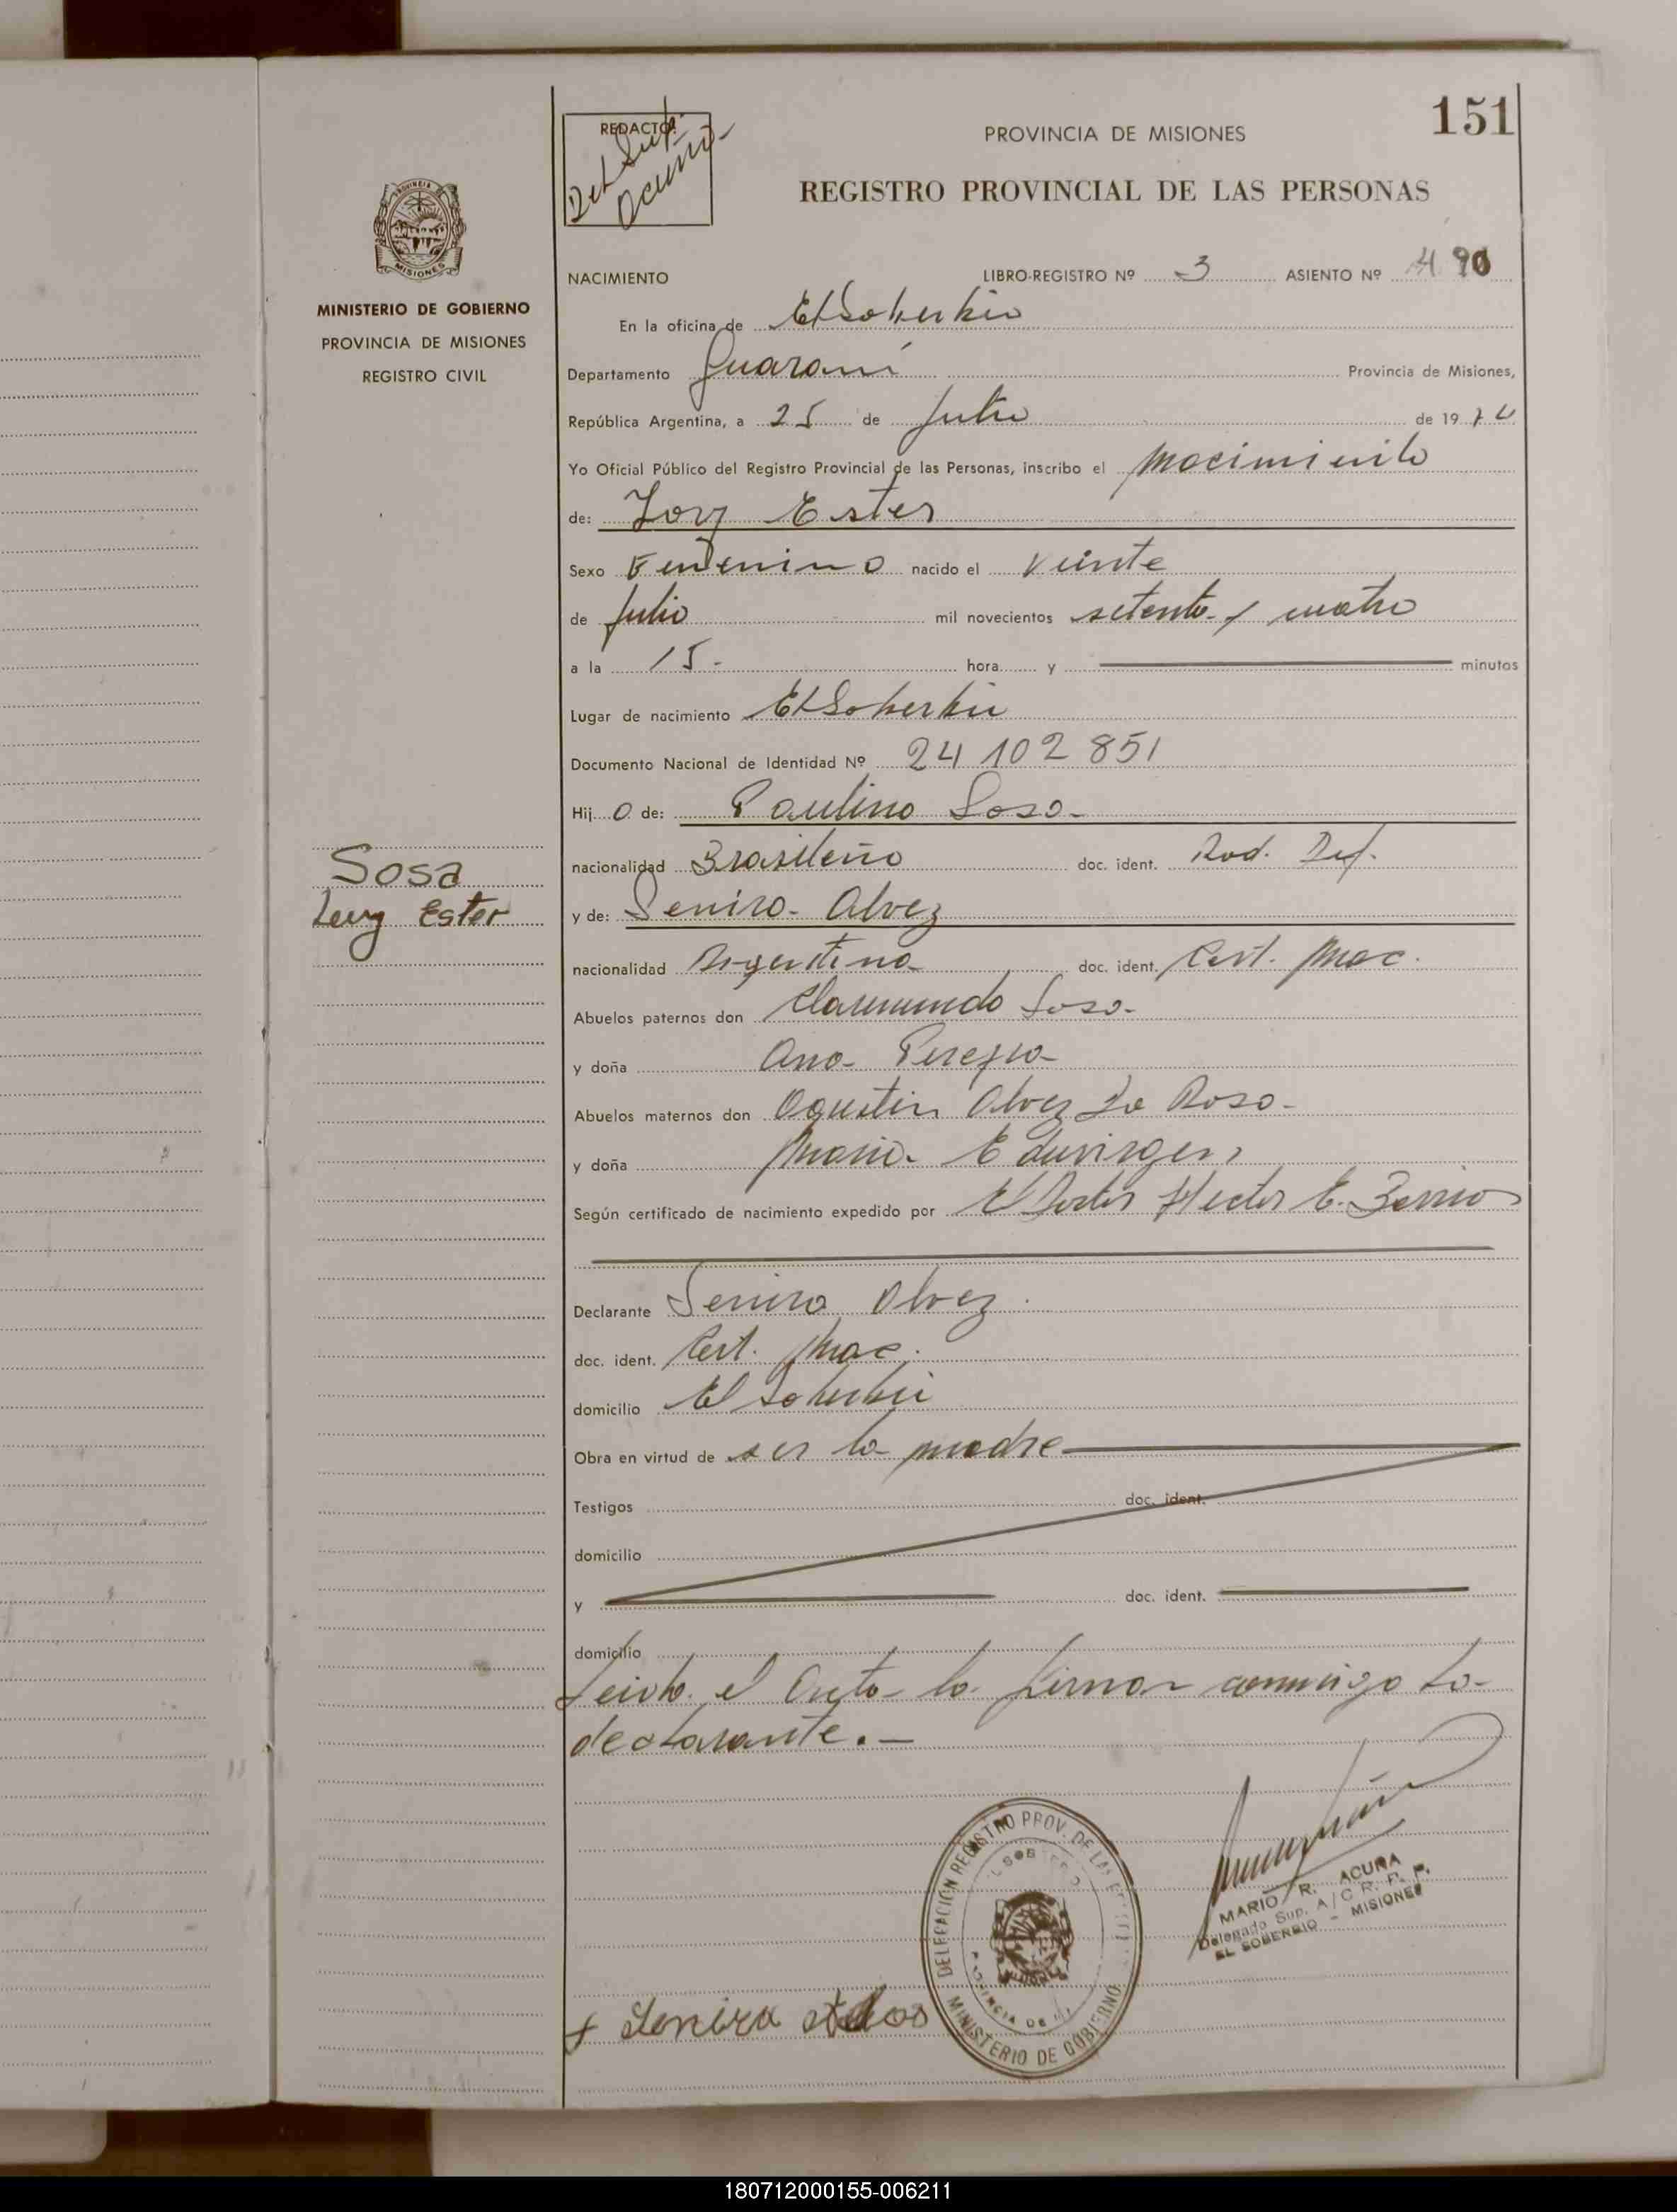 151
REDACTO:
Del Sup.
Acuña
PROVINCIA DE MISIONES
REGISTRO PROVINCIAL DE LAS PERSONAS
PROVINCIA DE
MISIONES
MINISTERIO DE GOBIERNO
PROVINCIA DE MISIONES
REGISTRO CIVIL
NACIMIENTO LIBRO-REGISTRO Nº 3 ASIENTO Nº 490
En la oficina de El Soberbio
Departamento Guaraní Provincia de Misiones,
República Argentina, a 25 de Julio de 1974
Yo Oficial Público del Registro Provincial de las Personas, inscribo el Nacimiento
de: Ester
Sexo Femenino nacido el veinte
de Julio mil novecientos setenta y cuatro
a la 15 - hora y minutos
Lugar de nacimiento El Soberbio
Documento Nacional de Identidad Nº 24 102 851
Hij a de: Paulino Sosa
nacionalidad Brasileño doc. ident.
Sosa
Ester
y de: Senira Alvez
nacionalidad Argentina doc. ident. Cert. Nac.
Abuelos paternos don Claremundo Sosa
y doña Ana
Abuelos maternos don Agustin Alvez Da Rosa
y doña Maria
Según certificado de nacimiento expedido por El Doctor Hector E. Barrios
Declarante Senira Alvez.
doc. ident. Cert. Nac.
domicilio El Soberbio
Obra en virtud de ser la madre
Testigos doc. ident.
domicilio
y doc. ident.
domicilio
Leida el Acta la firman conmigo la
declarante.-
DELEGACION REGISTRO PROV. DE LAS
MINISTERIO DE GOBIERNO
MARIO R. ACUÑA
Delegado Sup. A/C R. P. P.
EL SOBERBIO - MISIONES
+ Senira
180712000155-006211